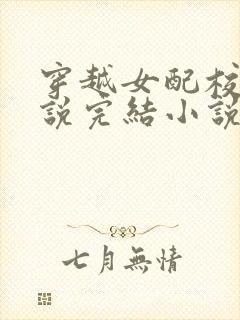 穿越女配校
說完結小說
七月無情